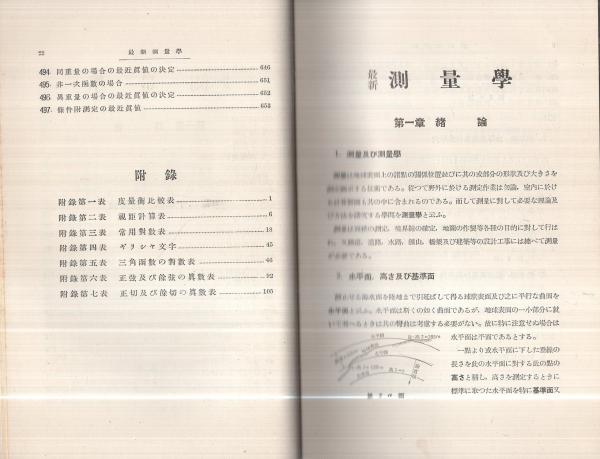 22 最新測量學
494. 同重量の場合の最近眞値の決定 646
495. 非一次函數の場合 651
496. 異重量の場合の最近眞値の決定 652
497. 條件附測定の最近眞値 653
附錄
附錄第一表 度量衡比較表 1
附錄第二表 視距計算表 6
附錄第三表 常用對數表 18
附錄第四表 ギリシヤ文字 45
附錄第五表 三角函數の對數表 46
附錄第六表 正弦及び餘弦の眞數表 92
附錄第七表 正切及び餘切の眞數表 105
最新 測量學
第一章 緖論
1. 測量及び測量學
測量は地球表面上の諸點の關係位置並びに其の或部分の形狀及び大きさを
技術である。從つて野外に於ける測定作業は勿論、室内に於け
其の中に含まれるのである。而して測量に對して必要な理論及
び方法を講究する學問を測量學と云ふ。
測定、境界線の確定、地圖の作製等各種の目的に對して行は
道路、水路、鑛山、橋梁及び建築等の設計工事には總べて測量
2. 水平面、高さ及び基準面
海水面を陸地まで引延ばして得る球狀表面及び之に平行な曲面を
水平面と云ふ。水平面は斯くの如く曲面であるが、地球表面の一小部分に就
いて考へるときは其の彎曲は考慮する必要がない。故に特に注意せぬ場合は
水平面は平面であるとする。
一點より或水平面に下した垂線の
長さを此の水平面に對する此の點の
高さと稱し、高さを測定するときに
標準に取つた水平面を特に基準面又
水平面
水平面